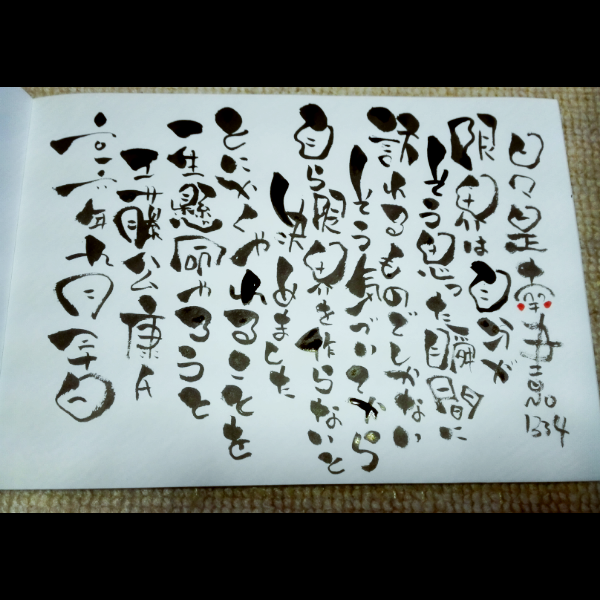 日々是 No 1334
限界は自分が
そう思った瞬間に
訪れるものでしかない
そう気づいてから
自ら限界を作らないと
決めました
とにかくやれることを
一生懸命やろうと
工藤公康氏
二六年九月